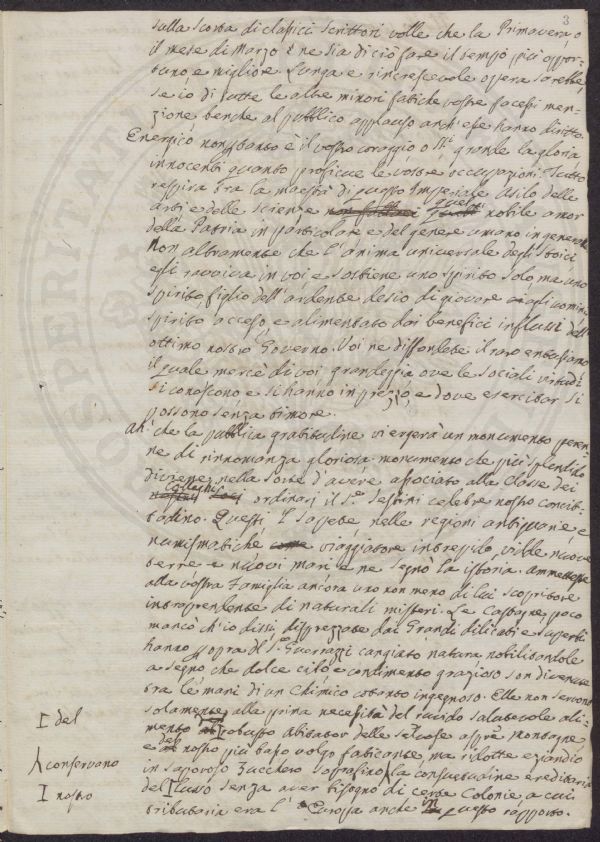 3
sulla scorta di classici scrittori volle che la Primavera, o
il mese di Marzo ne sia di ciò fare il tempo più oppor=
tuno, e migliore. Lunga e rincrescevole opera sarebbe,
se io di tutte le altre minori fatiche vostre facessi men=
zione benche al pubblico applauso anch'esse hanno diritto.
Energico nonostante è il vostro coraggio o SS.ri grande la gloria
innocenti quanto proficue le vostre occupazioni. Tutto
respira tra la maestà di questo Imperiale Asilo delle
arti e delle scienze quel nobile amor
della Patria in particolare e del genere umano in generale
Non altramente che l'anima universale degli stoici
egli ravviva in voi e sostiene uno spirito solo, ma uno
spirito figlio dell'ardente desio di giovare agli uomini
spirito acceso, e alimentato dai benefici influssi dell'
ottimo nostro Governo. Voi ne diffondete il raro entusiasmo
il quale mercè di voi grandeggia ove le sociali virtudi
si conoscono e si hanno in prezzo, e dove esercitar si
possono senza timore.
Ah che la pubblica gratitudine vi ergerà un monumento peren=
ne di rinnomanza gloriosa monumento che più splendido
diviene nella sorte d'avere associato alla classe dei
Colleghi ordinarj il S.r Sestini celebre nostro concit=
tadino. Questi sapete nelle regioni antiquarie e
numismatiche viaggiatore intrepido vidde nuove
terre e nuovi mari e ne segnò la istoria. Ammetteste
alla vostra Famiglia ancora uno non meno di lui scopritore
intraprendente di naturali misteri. Le Castagne, poco
mancò ch'io dissi, disprezzate dai Grandi dilicati e superbi
hanno sopra di S.r Guerrazzi cangiato natura nobilitandole
a segno che dolce cibo e condimento grazioso son divenute
tra le mani di un Chimico cotanto ingegnoso. Elle non servono
solamente alla prima necessità del ruvido salutevole ali=
mento robusto abitator delle selvose aspre montagne
e del nostro più basso volgo faticante, ma ridotte eziandio
in saporoso zucchero soprafino la consuetudine ereditaria
del lusso senza aver bisogno di certe Colonie a cui
tributaria era l'Europa anche in questo rapporto.
I del
conservano
I nostro